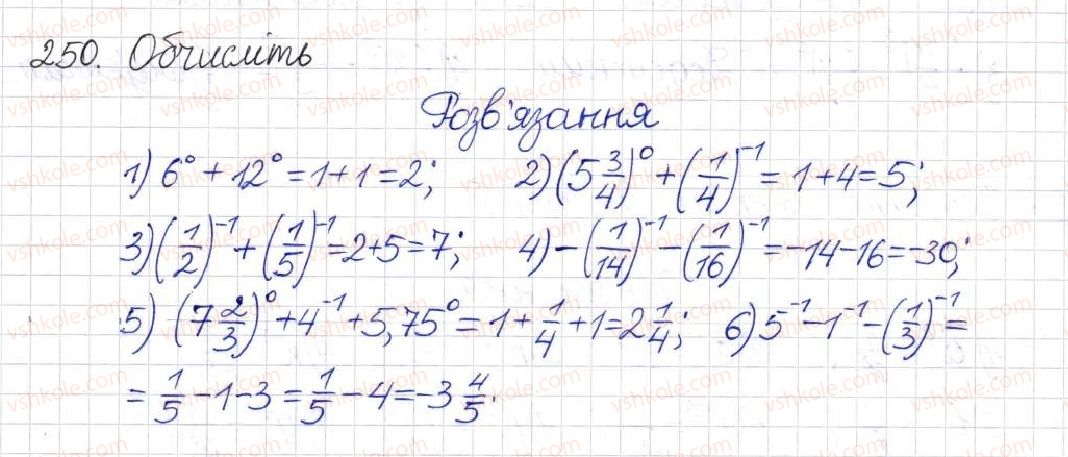 250. Обчисліть
Розв'язання
1) 6⁰ + 12⁰ = 1 + 1 = 2; 2) (5 3/4)⁰ + (1/4)⁻¹ = 1 + 4 = 5;
3) (1/2)⁻¹ + (1/5)⁻¹ = 2 + 5 = 7; 4) - (1/14)⁻¹ - (1/16)⁻¹ = -14 - 16 = -30;
5) (7 2/3)⁰ + 4⁻¹ + 5,75⁰ = 1 + 1/4 + 1 = 2 1/4; 6) 5⁻¹ - 1⁻¹ - (1/3)⁻¹ =
= 1/5 - 1 - 3 = 1/5 - 4 = -3 4/5.
vshkole.com